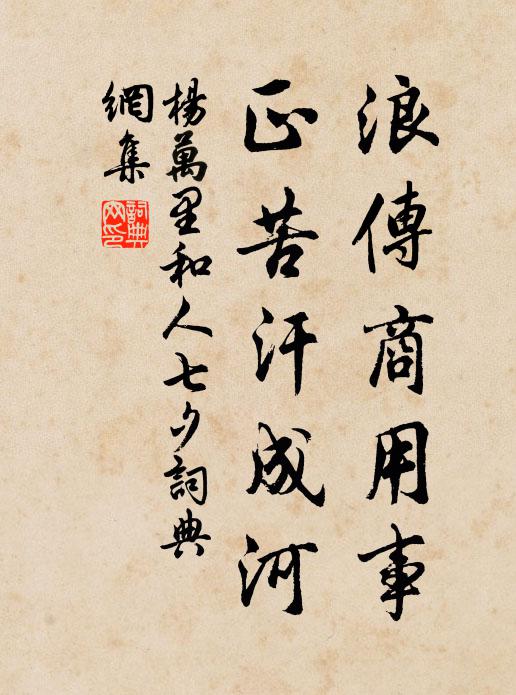 浪傳商用事
正苦汗成河
楊萬里和人七夕詞典
網集
詞典
网印